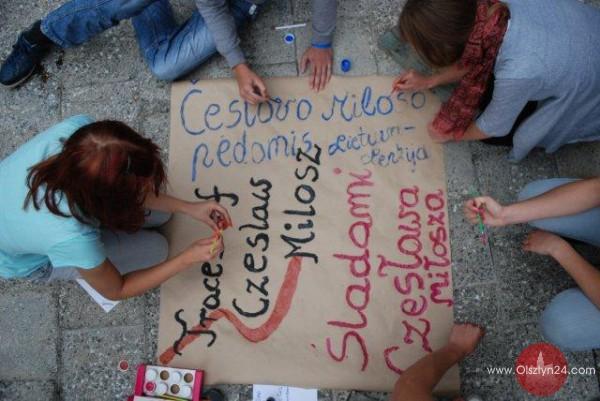 Česlovo Miłošo
pėdomis
Lietuvo-
Lenkija
Traces of
Czeslaw
Milosz
Śladami
Czesława
Miłosza
www.Olsztyn24.com